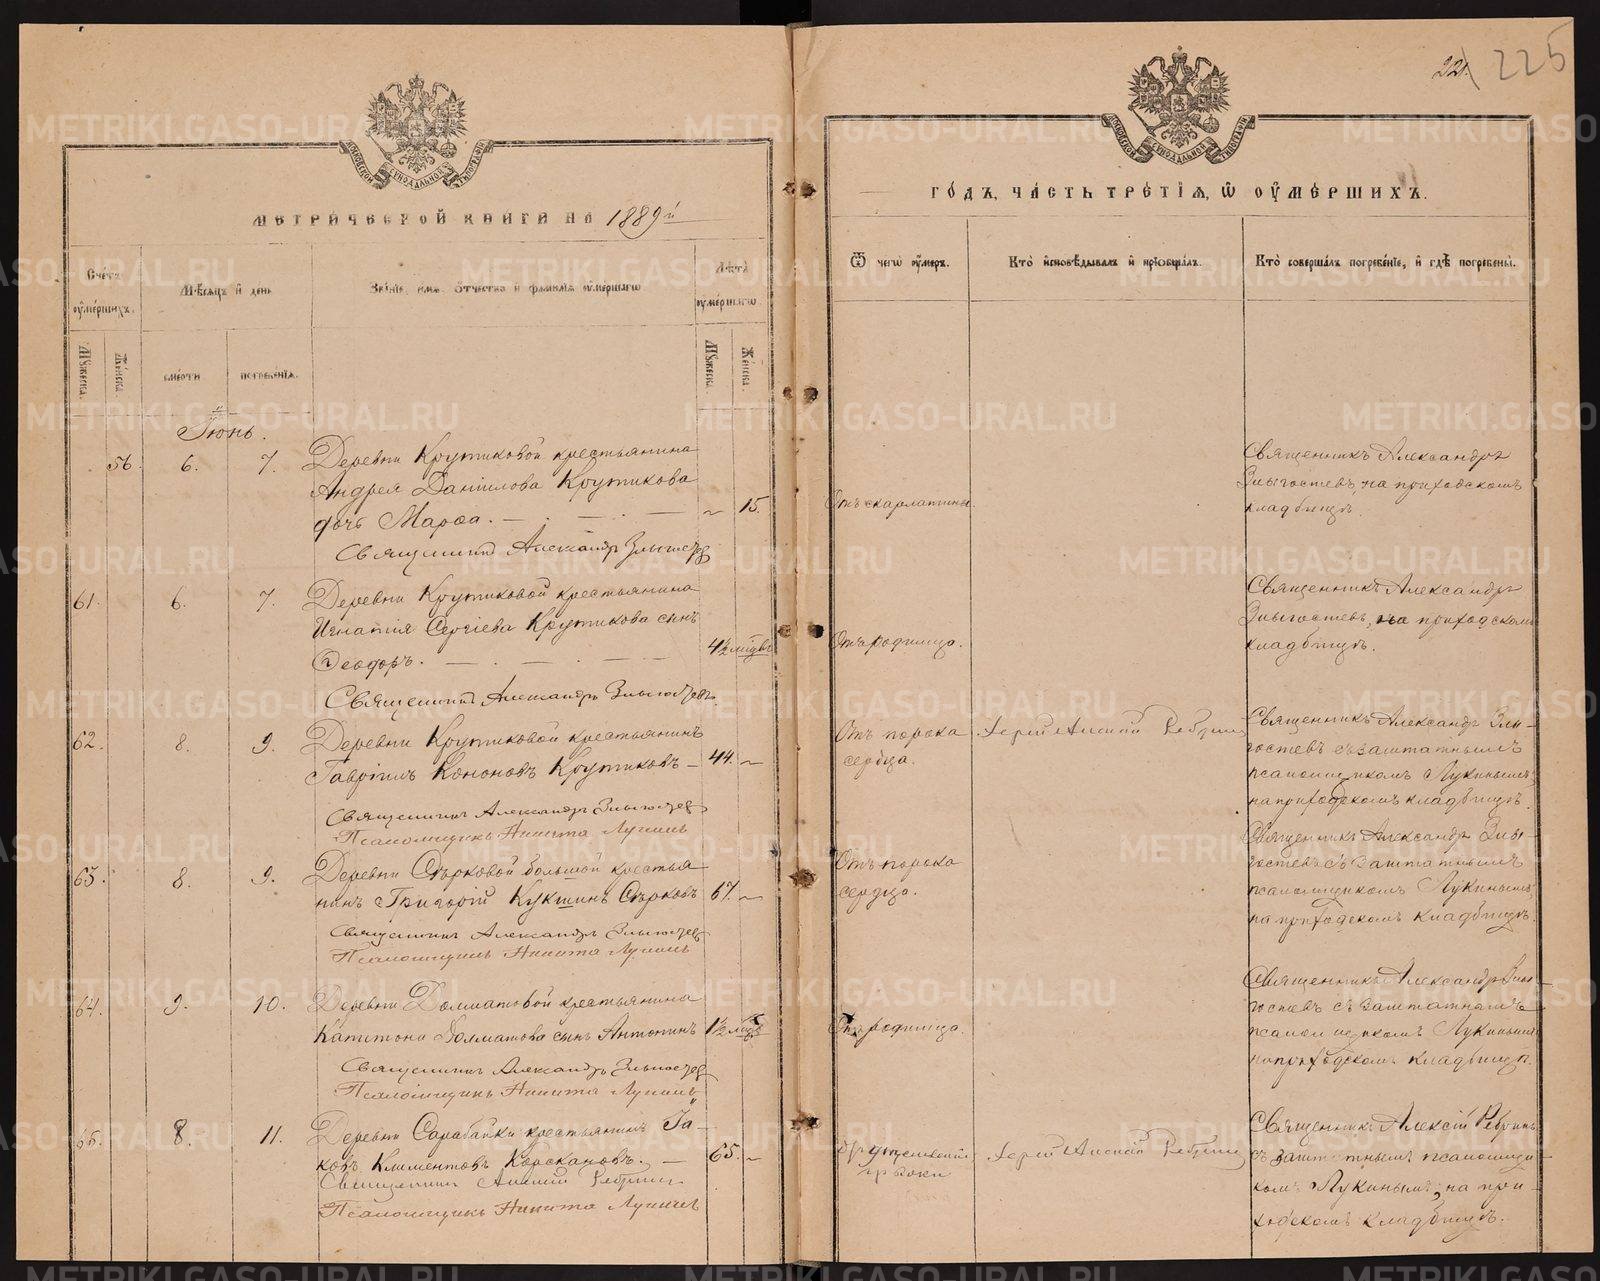 МЕТРИЧЕСКОЙ КНИГИ НА 1889й
Счетъ оумершихъ.
Мѣсяцъ и день
Званіе, имя, отчество и фамилія оумершаго
Лѣта оумершаго
Мужеска.
Женска.
смерти
погребенія.
Мужеска.
Женска.
Іюнь.
56. 6. 7. Деревни Крутиковой крестьянина
Андрея Даніилова Крутикова
дочь Марѳа. 15.
Священникъ Александръ Злыгостев
61. 6. 7. Деревни Крутиковой крестьянина
Игнатія Сергіева Крутикова сынъ
Ѳеодоръ. 4½ мѣсяц
Священникъ Александръ Злыгостевъ
62. 8. 9. Деревни Крутиковой крестьянинъ
Гавріилъ Кононовъ Крутиковъ 44.
Священникъ Александръ Злыгостев
Псаломщикъ Никита Лукинъ
63. 8. 9. Деревни Сѣрковой большой крестья
нинъ Григорій Кукшинъ Сѣрковъ 67.
Священникъ Александръ Злыгостев
Псаломщикъ Никита Лукинъ
64. 9. 10. Деревни Долматовой крестьянина
Капитона Долматова сынъ Антонинъ 1½ мѣс
Священникъ Александръ Злыгостев
Псаломщикъ Никита Лукинъ
65. 8. 11. Деревни Сарабайки крестьянинъ Іа-
ковъ Климентовъ Корскановъ. 65.
Священникъ Алексій Ребринъ
Псаломщикъ Никита Лукинъ
221. 225
ГОДЪ, ЧАСТЬ ТРЕТІЯ, Ѿ ОУМЕРШИХЪ.
Ѿ чегѡ оумеръ.
Кто исповѣдывалъ и пріобщалъ.
Кто совершалъ погребеніе, и гдѣ погребены.
Отъ скарлатины.
Священникъ Александръ
Злыгостевъ, на приходскомъ
кладбищѣ.
Отъ родимца.
Священникъ Александръ
Злыгостевъ, на приходскомъ
кладбищѣ.
Отъ порока
сердца.
Іерей Алексій Ребринъ
Священникъ Александръ Злы-
гостевъ съ заштатнымъ
псаломщикомъ Лукинымъ,
на приходскомъ кладбищѣ.
Отъ порока
сердца.
Священникъ Александръ Злы-
гостевъ съ заштатнымъ
псаломщикомъ Лукинымъ,
на приходскомъ кладбищѣ.
Отъ родимца.
Священникъ Александръ Злы-
гостевъ съ заштатнымъ
псаломщикомъ Лукинымъ
на приходскомъ кладбищѣ.
грыжи
Іерей Алексій Ребринъ
Священникъ Алексій Ребринъ
съ заштатнымъ псаломщи-
комъ Лукинымъ, на при-
ходскомъ кладбищѣ.
METRIKI.GASO-URAL.RU